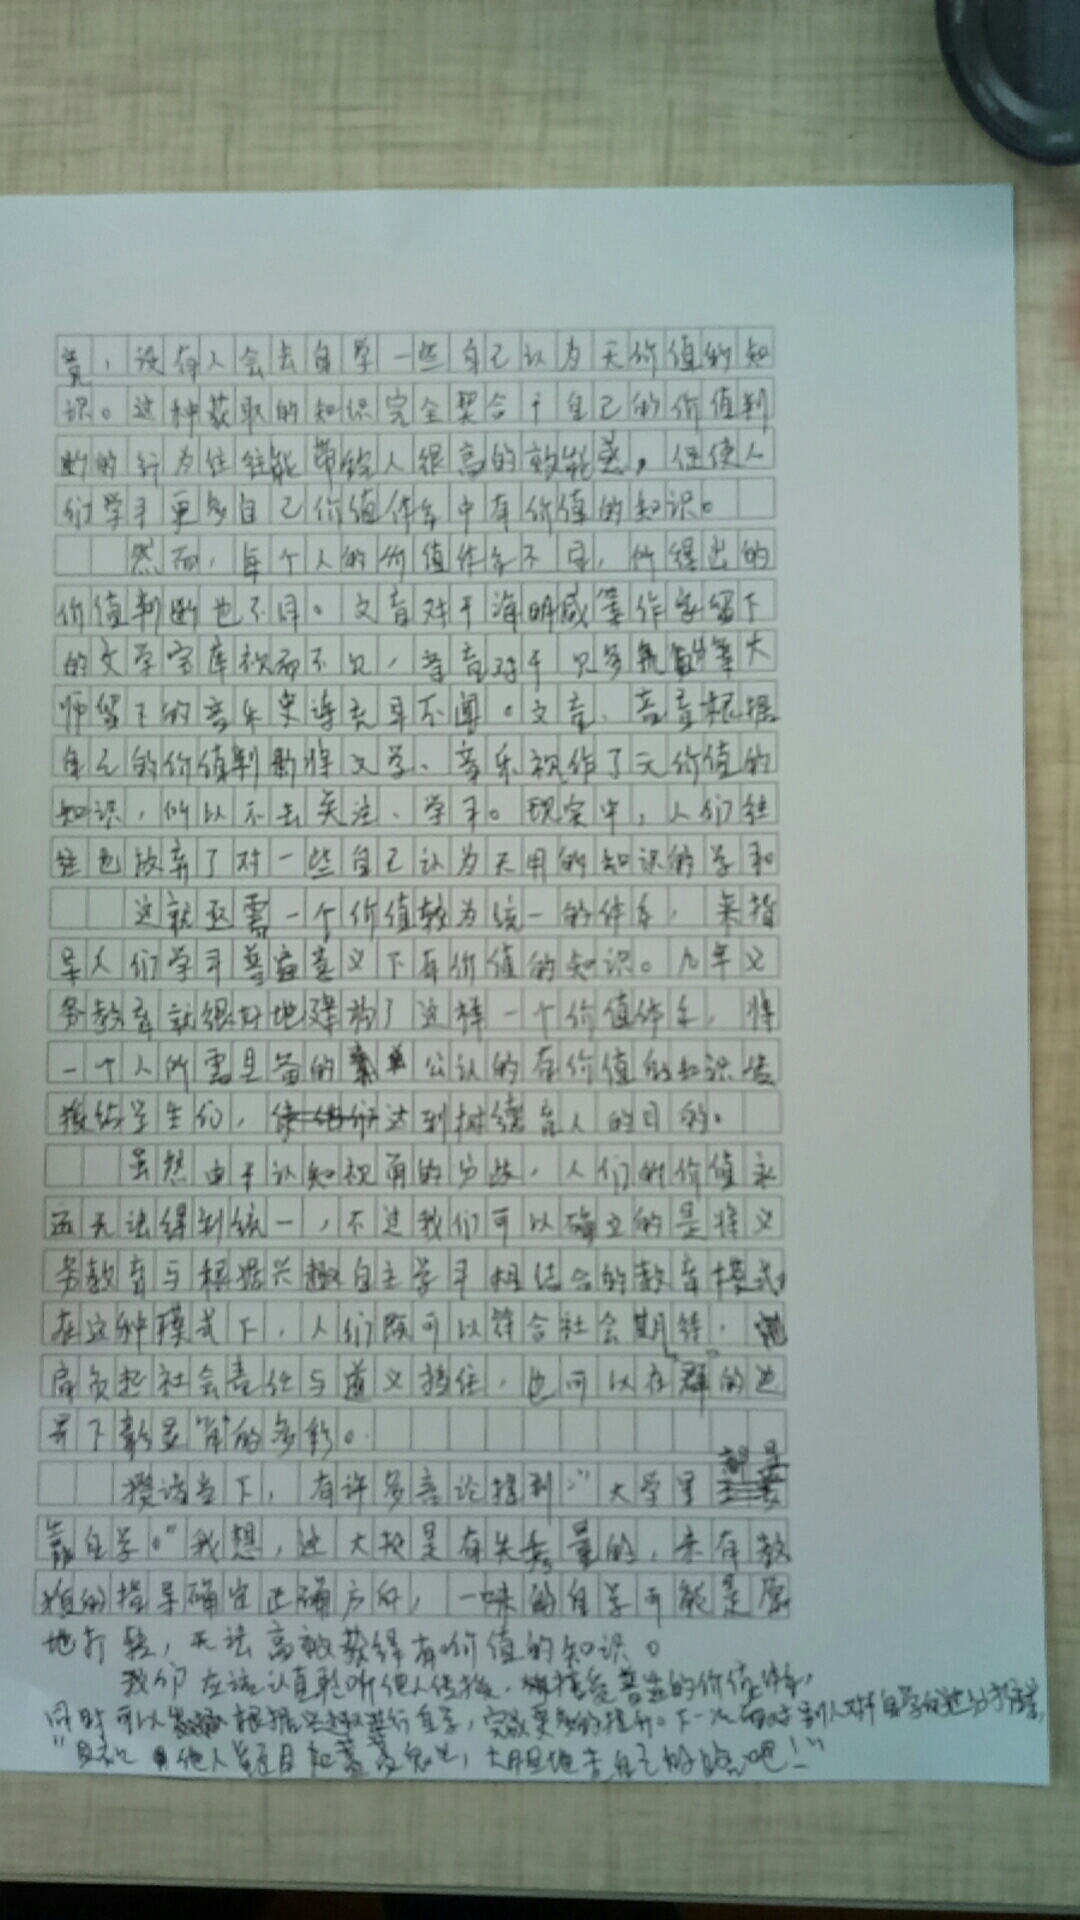 竟，没有人会去自学一些自己认为无价值的知
识。这种获取的知识完全契合于自己的价值判
断的行为往往能带给人很高的效能感，促使人
们学习更多自己价值体系中有价值的知识。
然而，每个人的价值体系不同，所得出的
价值判断也不同。文盲对于海明威等作家留下
的文学宝库视而不见，音盲对于贝多芬等大
师留下的音乐更连充耳不闻。文盲、音盲根据
自己的价值判断将文学、音乐视作了无价值的
知识，所以不去关注、学习。现实中，人们往
往也放弃了对一些自己认为无用的知识的学习
这就亟需一个价值较为统一的体系，来指
导人们学习普遍意义下有价值的知识。九年义
务教育就很好地建构了这样一个价值体系，将
一个人所需具备的公认的有价值的知识传
授给学生们，达到树德育人的目的。
虽然由于认知视角的分歧，人们的价值永
远无法得到统一，不过我们可以确立的是将义
务教育与根据兴趣自主学习相结合的教育模式
在这种模式下，人们既可以符合社会期待，
肩负起社会责任与道义担任，也可以在群的边
界下彰显“角”的多彩。
攒诸当下，有许多言论提到：“大学里都是
靠自学。”我想，这大抵是有失考量的，未有教
授的指导确定正确方向，一味的自学可能是原
地打转，无法高效获得有价值的知识。
我们应该认真聆听他人传授，接受普世的价值体系，
同时可以根据兴趣进行自学，完成更多的提升。下一次面对别人对于自学的
“他人 大胆地去自己的 吧！”